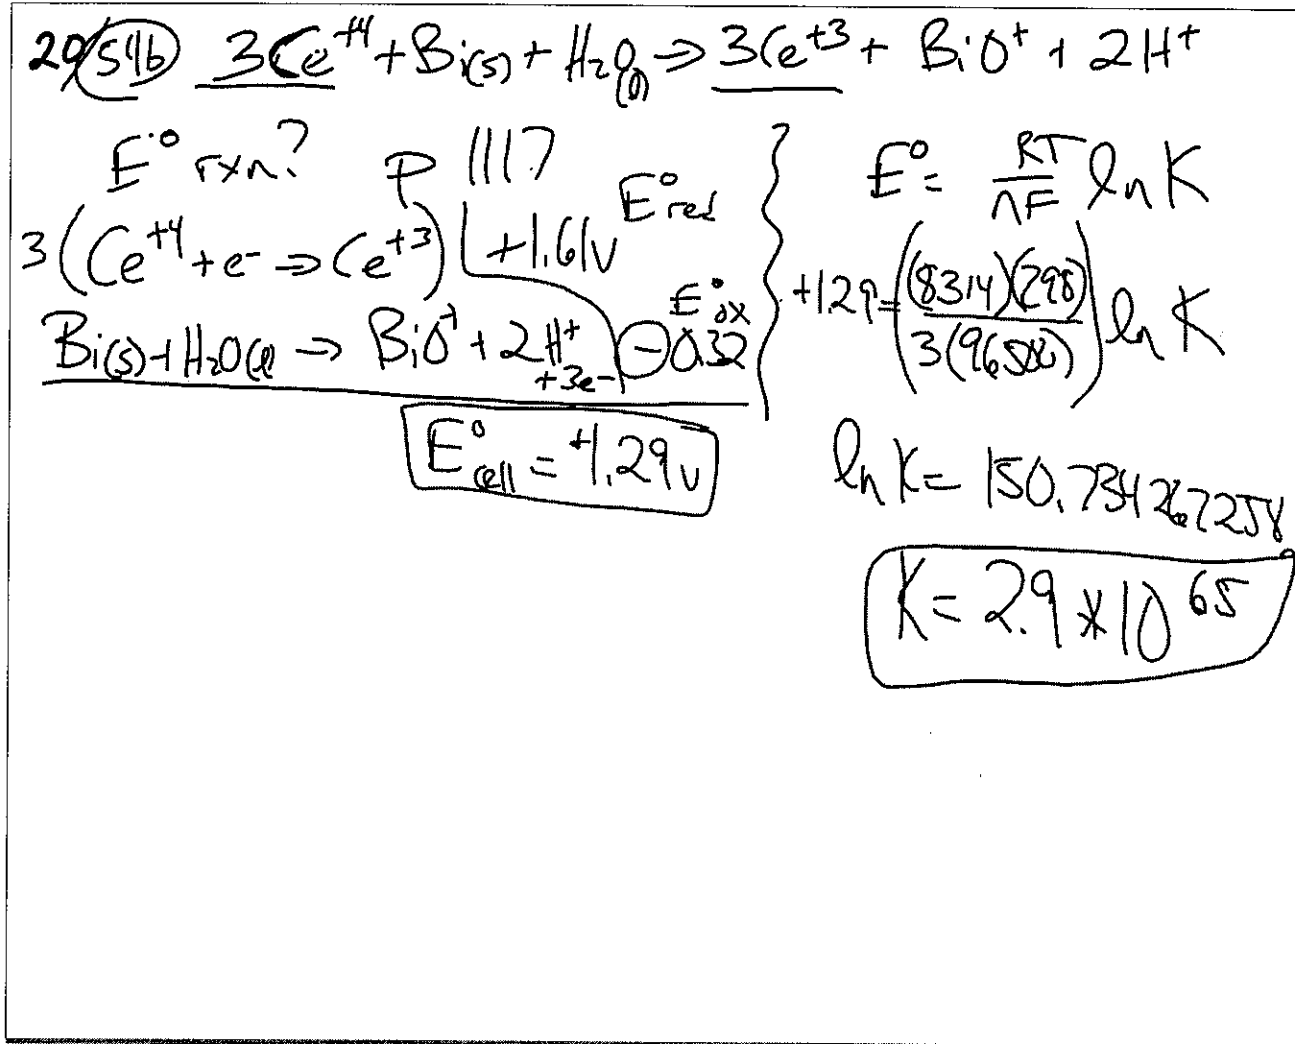 20/54b 3Ce⁺⁴ + Bi(s) + H₂O(l) ⇒ 3Ce⁺³ + BiO⁺ + 2H⁺
E° rxn? p 1117
E°red
3(Ce⁺⁴ + e⁻ ⇒ Ce⁺³) +1.61v
E°ox
Bi(s) + H₂O(l) ⇒ BiO⁺ + 2H⁺ + 3e⁻ -0.32
E°cell = +1.29v
E° = RT/nF ln K
+1.29 = ((8.314)(298)/3(96500)) ln K
ln K = 150.734267258
K = 2.9 * 10⁶⁵